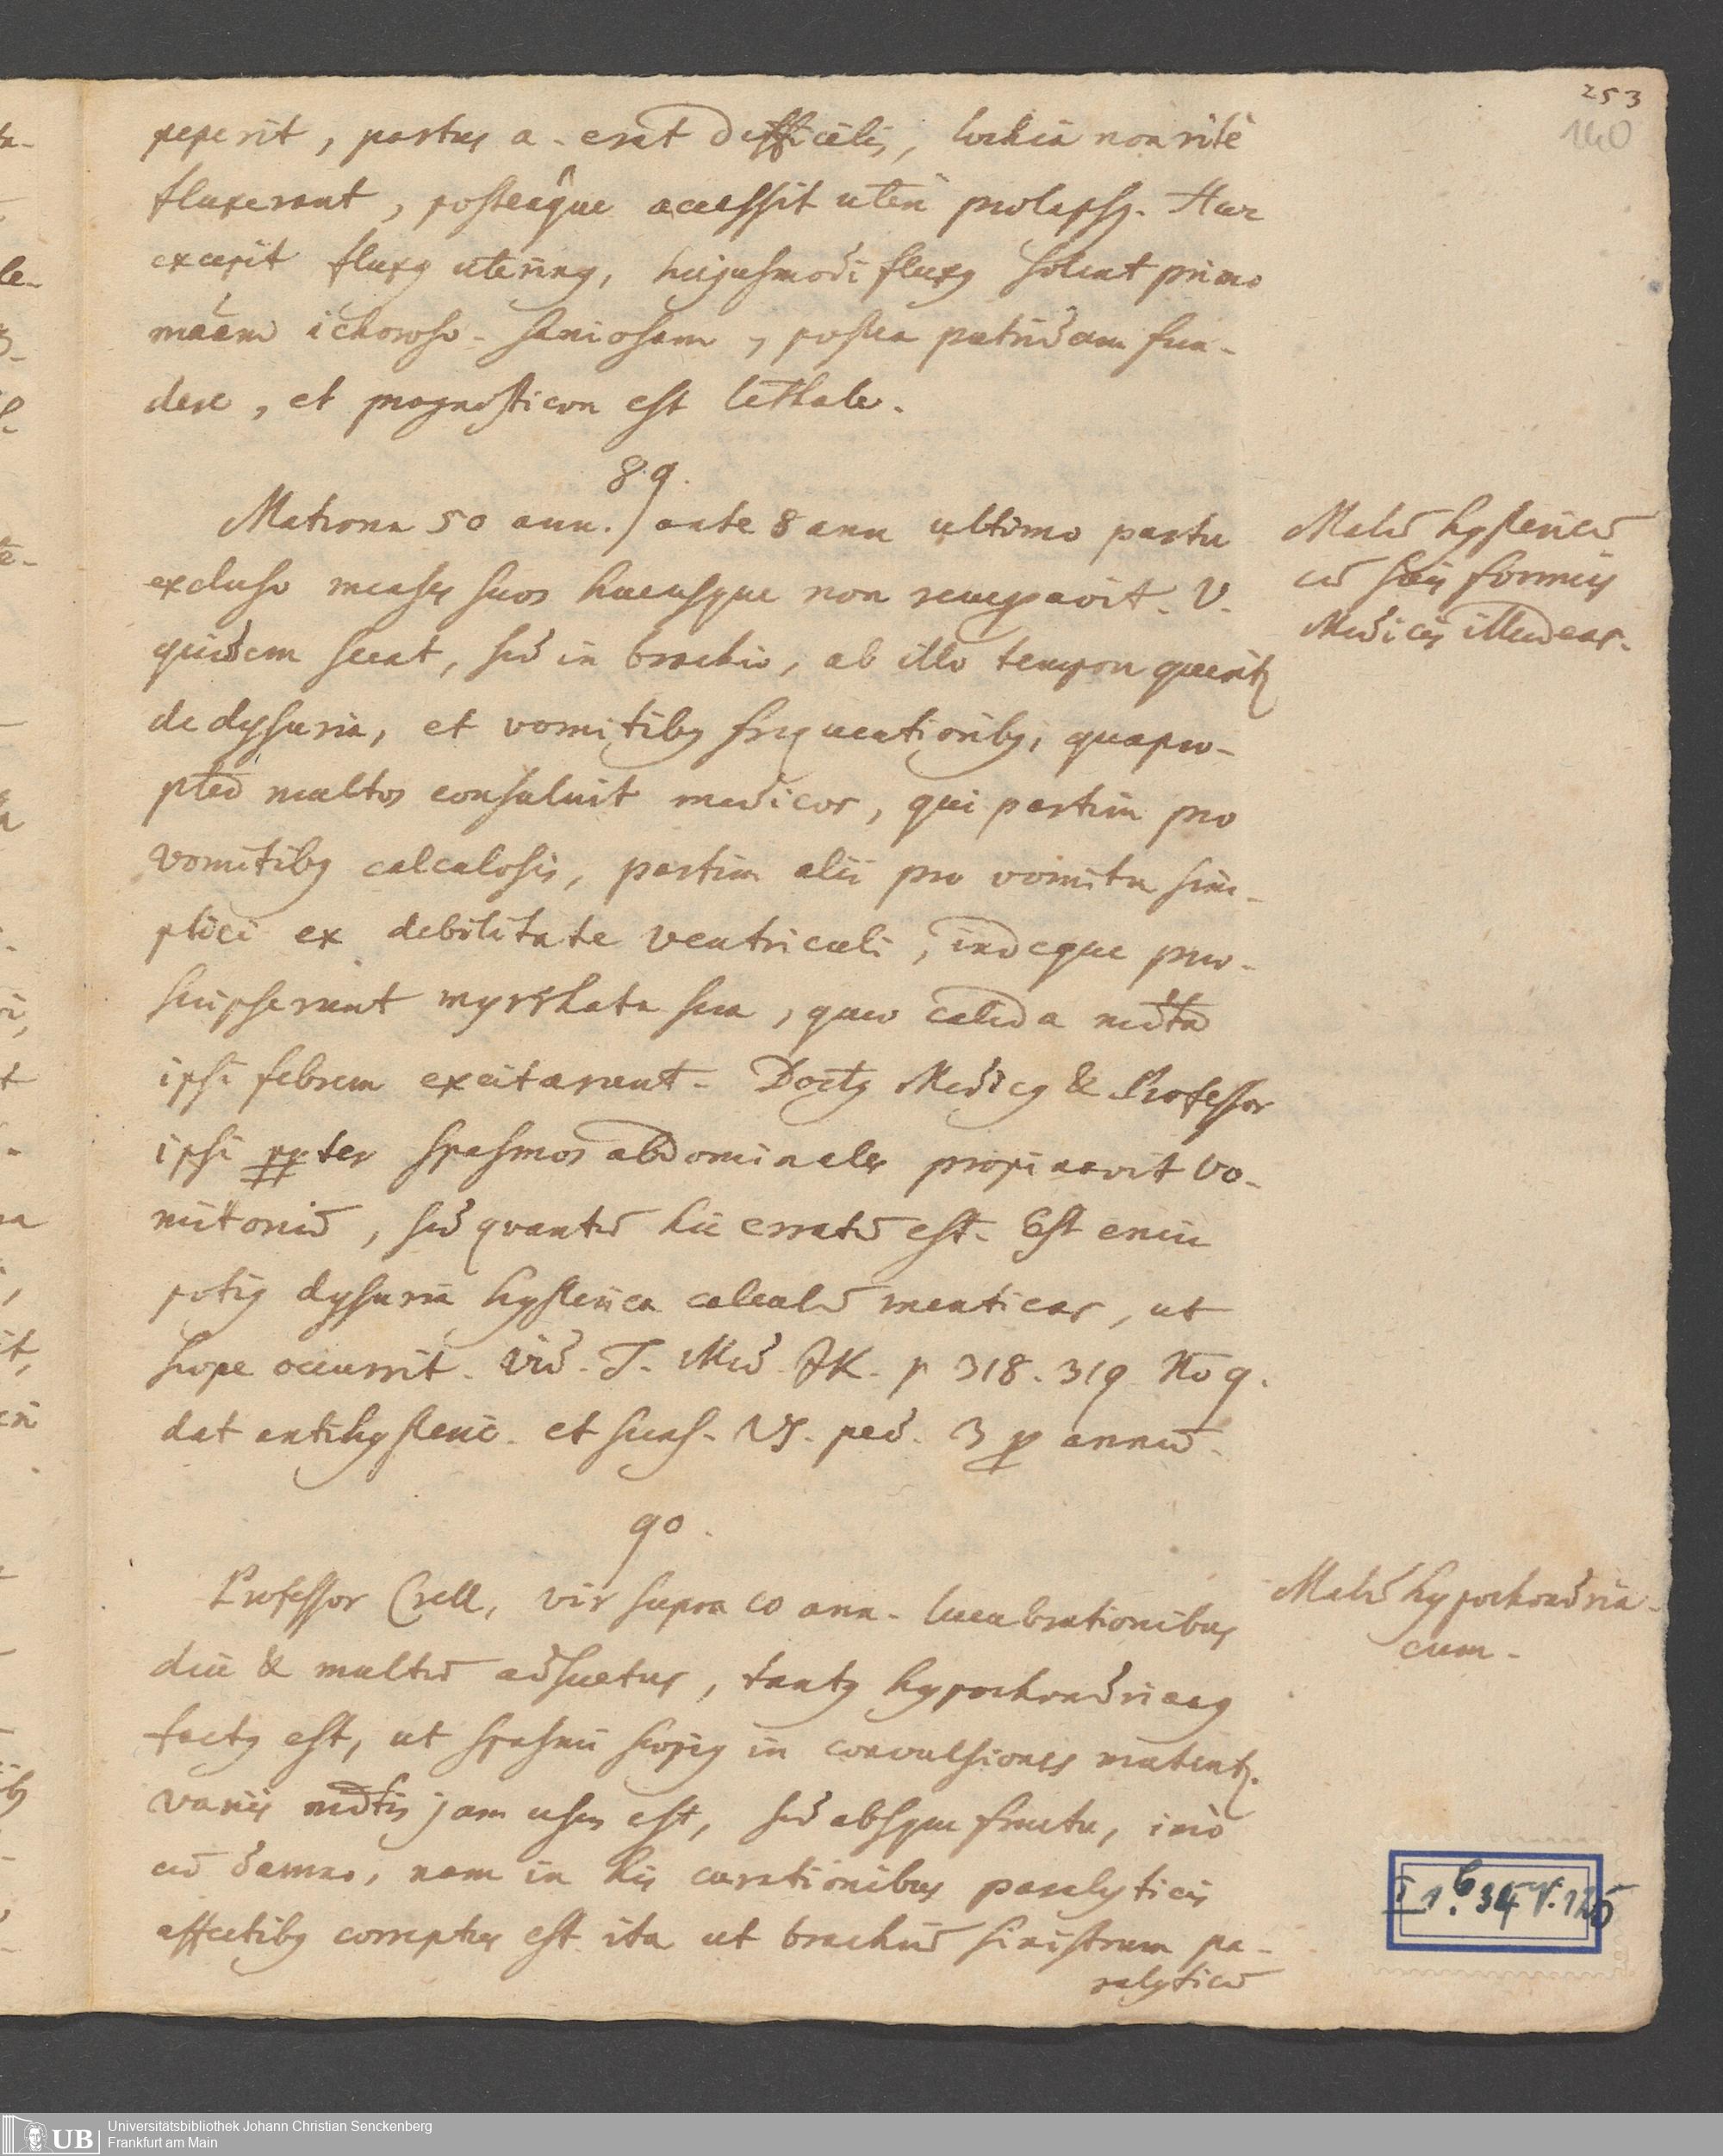 253
140
peperit, partus a. erat difficilis, lochia non rite
fluxerant, posteaque accessit uteri prolapsq. Hunc
excepit fluxq uterinq, hujusmodi fluxq solent primo
maam ichoroso-saniosam, postea putridam fun-
dere, et prognosticon est lethale.
89.
Matrona 50 ann. / ante 8 ann ultimo partu
excluso menses suos hucusque non recuperavit. V.
quidem secat, sed in brachio, ab illo tempore querit
de dysuria, et vomitibq frequentioribq, quapro-
pter multos consuluit medicos, qui partim pro
vomitibq calculosis, partim alii pro vomitu sim-
plici ex debilitate ventriculi, indeque pro-
scripserunt myrrhata sua, quae calida mdta
ipsi febrem excitarunt. Doctq Medicq & Professor
ipsi ppter spasmos abdominales propinavit vo-
mitoriu, sed quantu hic erratu est. Est enim
potiq dysuria hysterica calculu menticas, ut
saepe occurrit. Vid. T. Med. JK. p 318. 319 No 9.
dat antihysteric. et suas. VS. ped. 3 p annu.
Malu hystericu
cu suis formis
Medicis illudens.
90.
Professor Crell, vir supra 60 ann. lucubrationibus
diu & multu adsuetus, tantq hypochondriacq
factq est, ut spasmi saepiq in convulsiones mutent.
variis mdtis jam usus est, sed absque fructu, imo
cu damno, nam in his curationibus paralyticis
affectibq correptus est ita ut brachiu sinistrum pa-
ralyticu
Malu hypochondria-
cum.
I 1. b 34 N. 125
UB Universitätsbibliothek Johann Christian Senckenberg
Frankfurt am Main